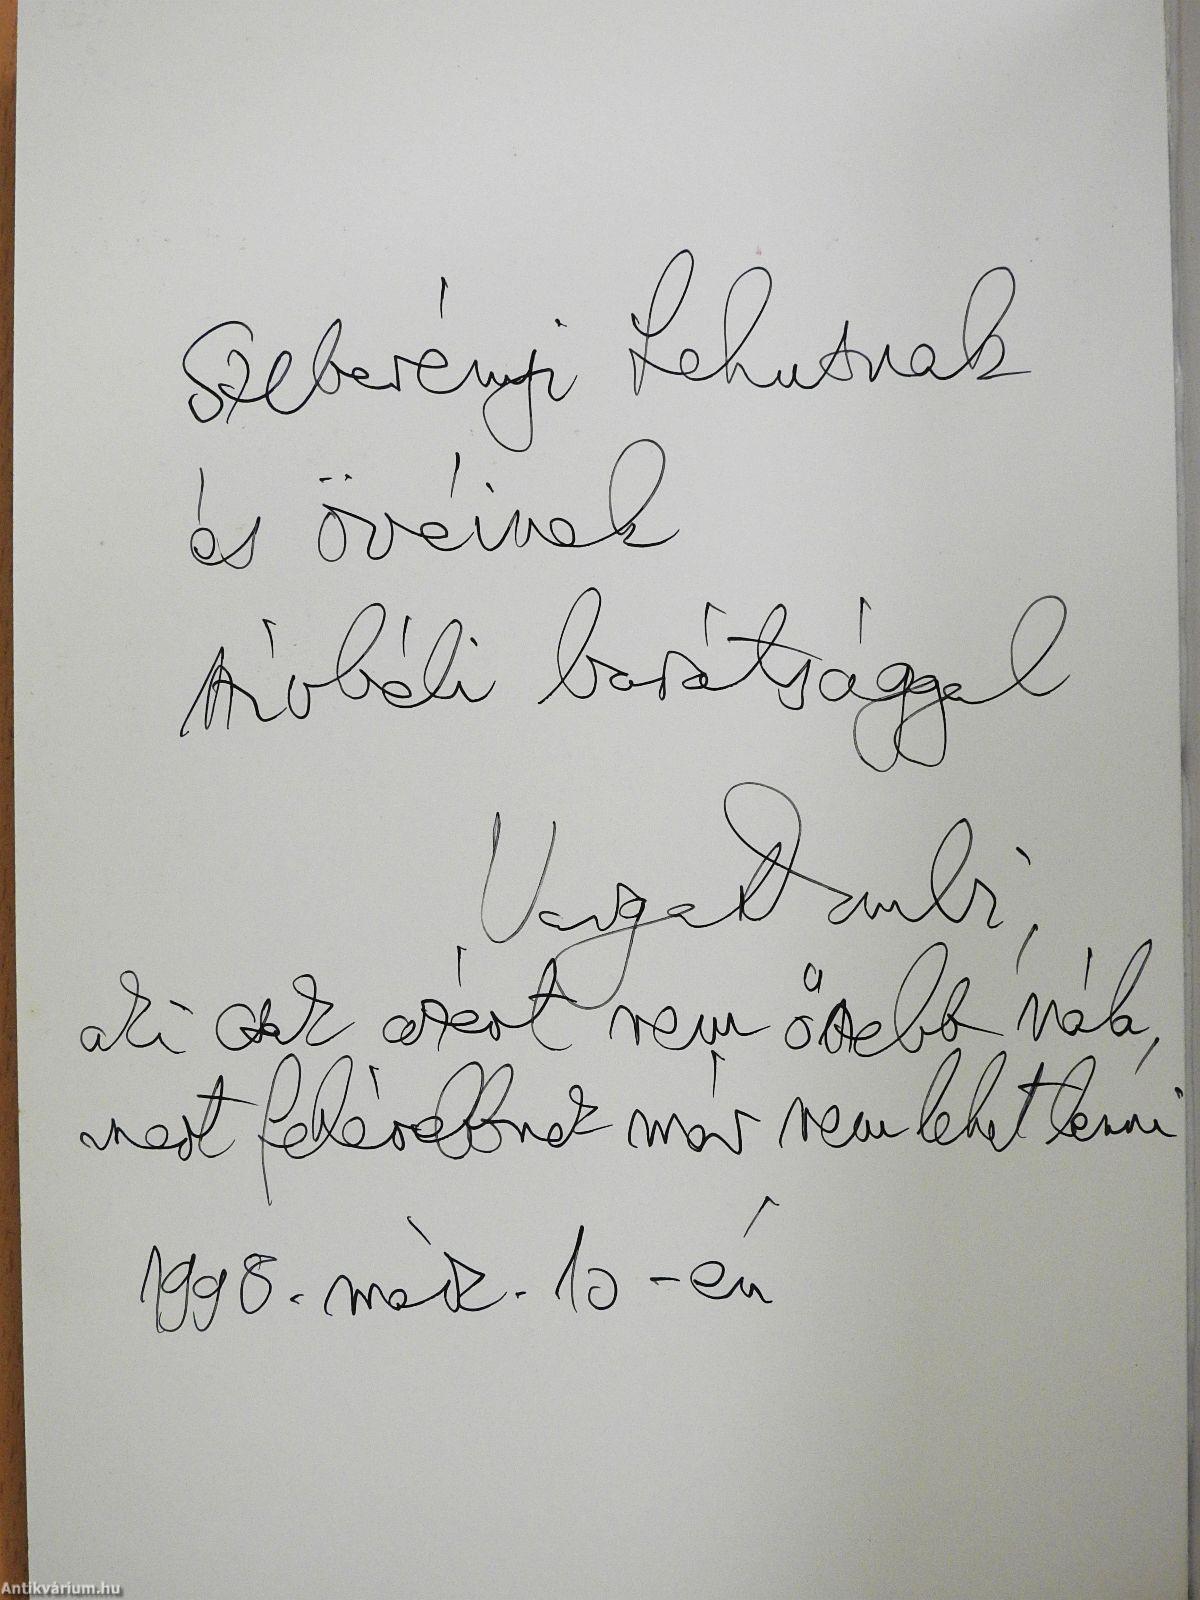 Szeberényi Lehutnak
és övéinek
szívbéli barátsággal
Varga Domби,
aki csak azért nem őszebb nála,
mert fehérebbnek már nem lehet lenni
1998. márc. 10-én
Antikvárium.hu